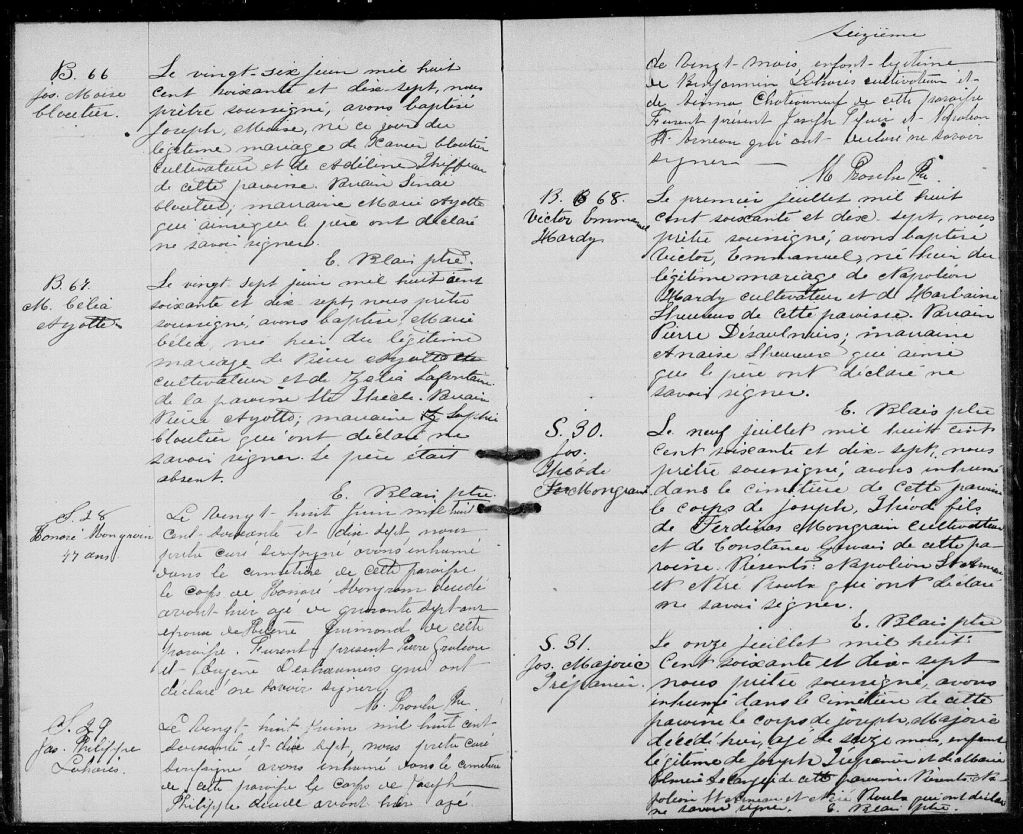 B. 66
Jos. Moise
Cloutier.
Le vingt-six juin mil huit
cent soixante et dix-sept, nous
prêtre soussigné, avons baptisé
Joseph, Moise, né ce jour du
légitime mariage de Xavier Cloutier
cultivateur et de Adéline Thiffau
de cette paroisse. Parrain
Cloutier; marraine Marie Ayotte
qui ainsi que le père ont déclaré
ne savoir signer.
E. Blais ptre.
B. 67.
M. Célia
Ayotte
Le vingt sept juin mil huit cent
soixante et dix-sept, nous prêtre
soussigné, avons baptisé, Marie
Célia, née hier du légitime
mariage de Pierre Ayotte
cultivateur et de Zélia Lafontaine
de la paroisse Ste Thècle. Parrain
Pierre Ayotte; marraine Sophie
Cloutier qui ont déclaré ne
savoir signer. Le père était
absent.
E. Blais ptre.
S. 28
Honoré Mongrain
47 ans
Le vingt-huit juin mil huit
cent-soixante et dix sept, nous
prêtre curé soussigné avons inhumé
dans le cimetière de cette paroisse
le corps de Honoré Mongrain décédé
avant hier agé de quarante sept ans
époux de Guimond de cette
paroisse. Furent présent Pierre
et Eugène Deshaumiers qui ont
déclaré ne savoir signer.
M. Proulx Ptre
S. 29
Jos. Philippe
Lahaies.
Le vingt huit Juin mil huit cent-
soixante et dix sept, nous prêtre curé
soussigné avons inhumé dans le cimetière
de cette paroisse le corps de Joseph
Philippe décédé avant hier agé
Seizième
de vingt-mois, enfant légitime
de Benjamin Lahaies cultivateur et
de Emma Chateauneuf de cette paroisse
Furent présent Joseph et Napoléon
St-Arneau qui ont déclaré ne savoir
signer
M. Proulx Ptre.
B. 68.
Victor Emmanuel
Hardy
Le premier juillet mil huit
cent soixante et dix sept, nous
prêtre soussigné, avons baptisé
Victor, Emmanuel, né hier du
légitime mariage de Napoléon
Hardy cultivateur et de
Lheureux de cette paroisse. Parrain
Pierre Désaulniers; marraine
Anaise Lheureux qui ainsi
que le père ont déclaré ne
savoir signer.
E. Blais ptre
S. 30.
Jos.
Théode
Mongrain
Le neuf juillet mil huit cent
cent soixante et dix-sept, nous
prêtre soussigné, avons inhumé
dans le cimetière de cette paroisse
le corps de Joseph, Théod fils
de Ferdinas Mongrain cultivateur
et de Constance Gervais de cette pa-
roisse. Présents: Napoléon St Arneau
et Néré Proulx qui ont déclaré
ne savoir signer.
E. Blais ptre
S. 31.
Jos. Majoric
Trépanier.
Le onze juillet mil huit
cent soixante et dix-sept
nous prêtre soussigné, avons
inhumé dans le cimetière de cette
paroisse le corps de joseph, Majoric
décédé hier, agé de seize mois, enfant
légitime de joseph Trépanier et de Marie
de cette paroisse. Présents: Na-
poléon St Arneau et Néré Proulx qui ont déclaré
ne savoir signer. E. Blais ptre.